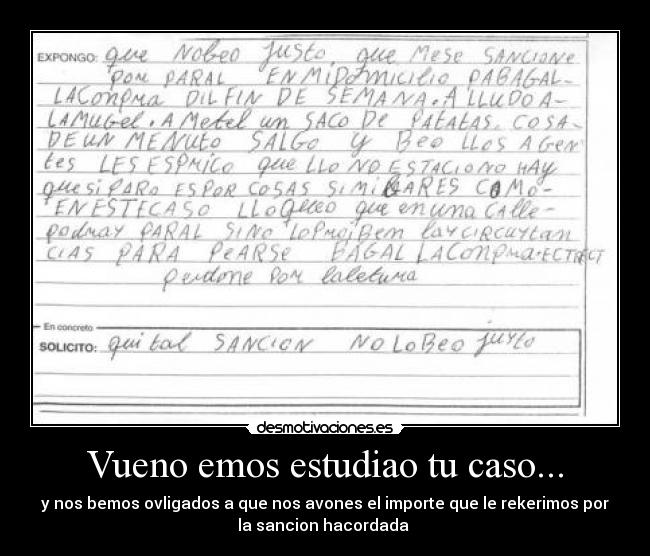 EXPONGO: que NoBeo justo que MESE SANCIONE
POR PARAL EN MI Domicilio PABAGAL-
LA ConPRa DIL FIN DE SEMANA. A LLUDO A-
LA MUGEL. A METEL un SACO De PATATAS. COSA-
DE UN MENUTO SALGO Y BEO LLOS AGEN
tes LES ESPRICO que LLO NO ESTACIONO HAY
que si PARO ES POR COSAS SIMILARES COMO-
EN ESTE CASO LLO QUEO que en una CALLE-
podray PARAL SI NO LO PROJBem lay CIRCUYTAN
CIAS PARA PEARSE BAGAL LA ConPRa. ECTECT
perdone Por la letura
En concreto
SOLICITO: quital SANCION NO LO BEO juyto
desmotivaciones.es
Vueno emos estudiao tu caso...
y nos bemos ovligados a que nos avones el importe que le rekerimos por
la sancion hacordada